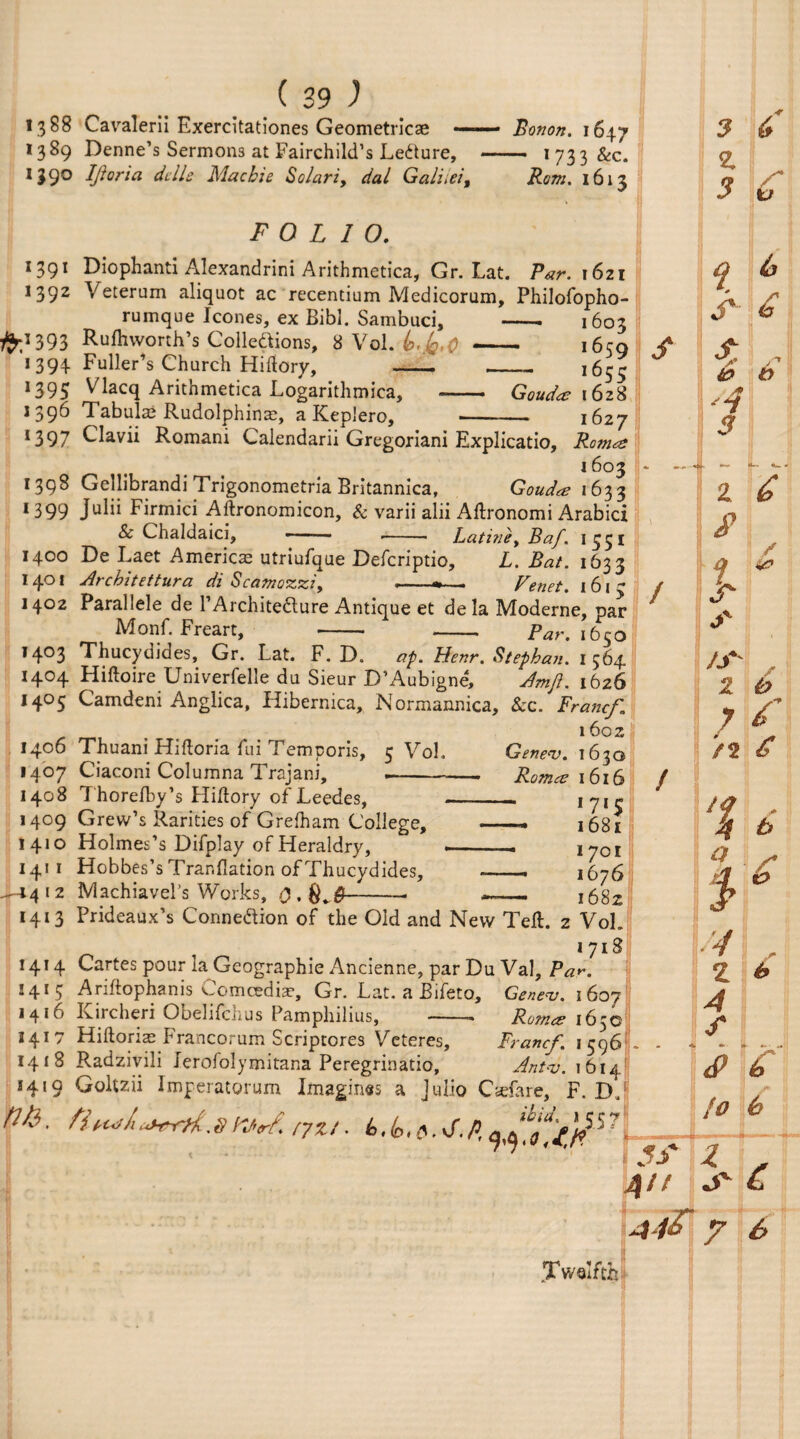 ( 39 )
1388 Cavalerii Exercitationes Geometricæ —— Bonon. 1647 3 6
1389 Denne's Sermons at Fairchild's Lecture, —— 1733 &c. 2
1390 Istoria delle Machie Solari, dal Galilei, Rom. 1613 3 6
FOLIO.
1391 Diophanti Alexandrini Arithmetica, Gr. Lat. Par. 1621 9 6
1392 Veterum aliquot ac recentium Medicorum, Philosopho-
rumque Icones, ex Bibl. Sambuci, —— 1603 5 6
1393 Rushworth's Collections, 8 Vol. 6.6.0 —— 1659 5 5
1394 Fuller's Church History, —— —— 1655 6 6
1395 Vlacq Arithmetica Logarithmica, —— Goudæ 1628 4
1396 Tabulæ Rudolphinæ, a Keplero, —— 1627 3
1397 Clavii Romani Calendarii Gregoriani Explicatio, Romæ
1603
1398 Gellibrandi Trigonometria Britannica, Goudæ 1633 2 6
1399 Julii Firmici Astronomicon, & varii alii Astronomi Arabici
& Chaldaici, —— —— Latinè, Bas. 1551 8
1400 De Laet Americæ utriusque Descriptio, L. Bat. 1633 9 6
1401 Architettura di Scamozzi, —— Venet. 1615 / 5
1402 Parallele de l'Architecture Antique et de la Moderne, par
Mons. Freart, —— —— Par. 1650 5
1403 Thucydides, Gr. Lat. F. D. ap. Henr. Stephan. 1564 15
1404 Histoire Universelle du Sieur D'Aubigné, Amst. 1626 2 6
1405 Camdeni Anglica, Hibernica, Normannica, &c. Francf.
1602 7 6
1406 Thuani Historia sui Temporis, 5 Vol. Genev. 1630 12 6
1407 Ciaconi Columna Trajani, —— Romæ 1616 /
1408 Thoresby's History of Leedes, —— 1715 19
1409 Grew's Rarities of Gresham College, —— 1681 4 6
1410 Holmes's Display of Heraldry, —— 1701 9
1411 Hobbes's Translation of Thucydides, —— 1676 4 6
1412 Machiavel's Works, 0.8.6 —— —— 1682
1413 Prideaux's Connection of the Old and New Test. 2 Vol.
1718 14
1414 Cartes pour la Geographie Ancienne, par Du Val, Par. 2 6
1415 Aristophanis Comœdiæ, Gr. Lat. a Biseto, Genev. 1607 4
1416 Kircheri Obeliscus Pamphilius, —— Romæ 1650 5
1417 Historiæ Francorum Scriptores Veteres, Francf. 1596
1418 Radzivili Ierosolymitana Peregrinatio, Antv. 1614 8 6
1419 Goltzii Imperatorum Imagines a Julio Cæsare, F. D.
ibid. 1557 10 6
35 2
411 5 6
446 7 6
Twelfth